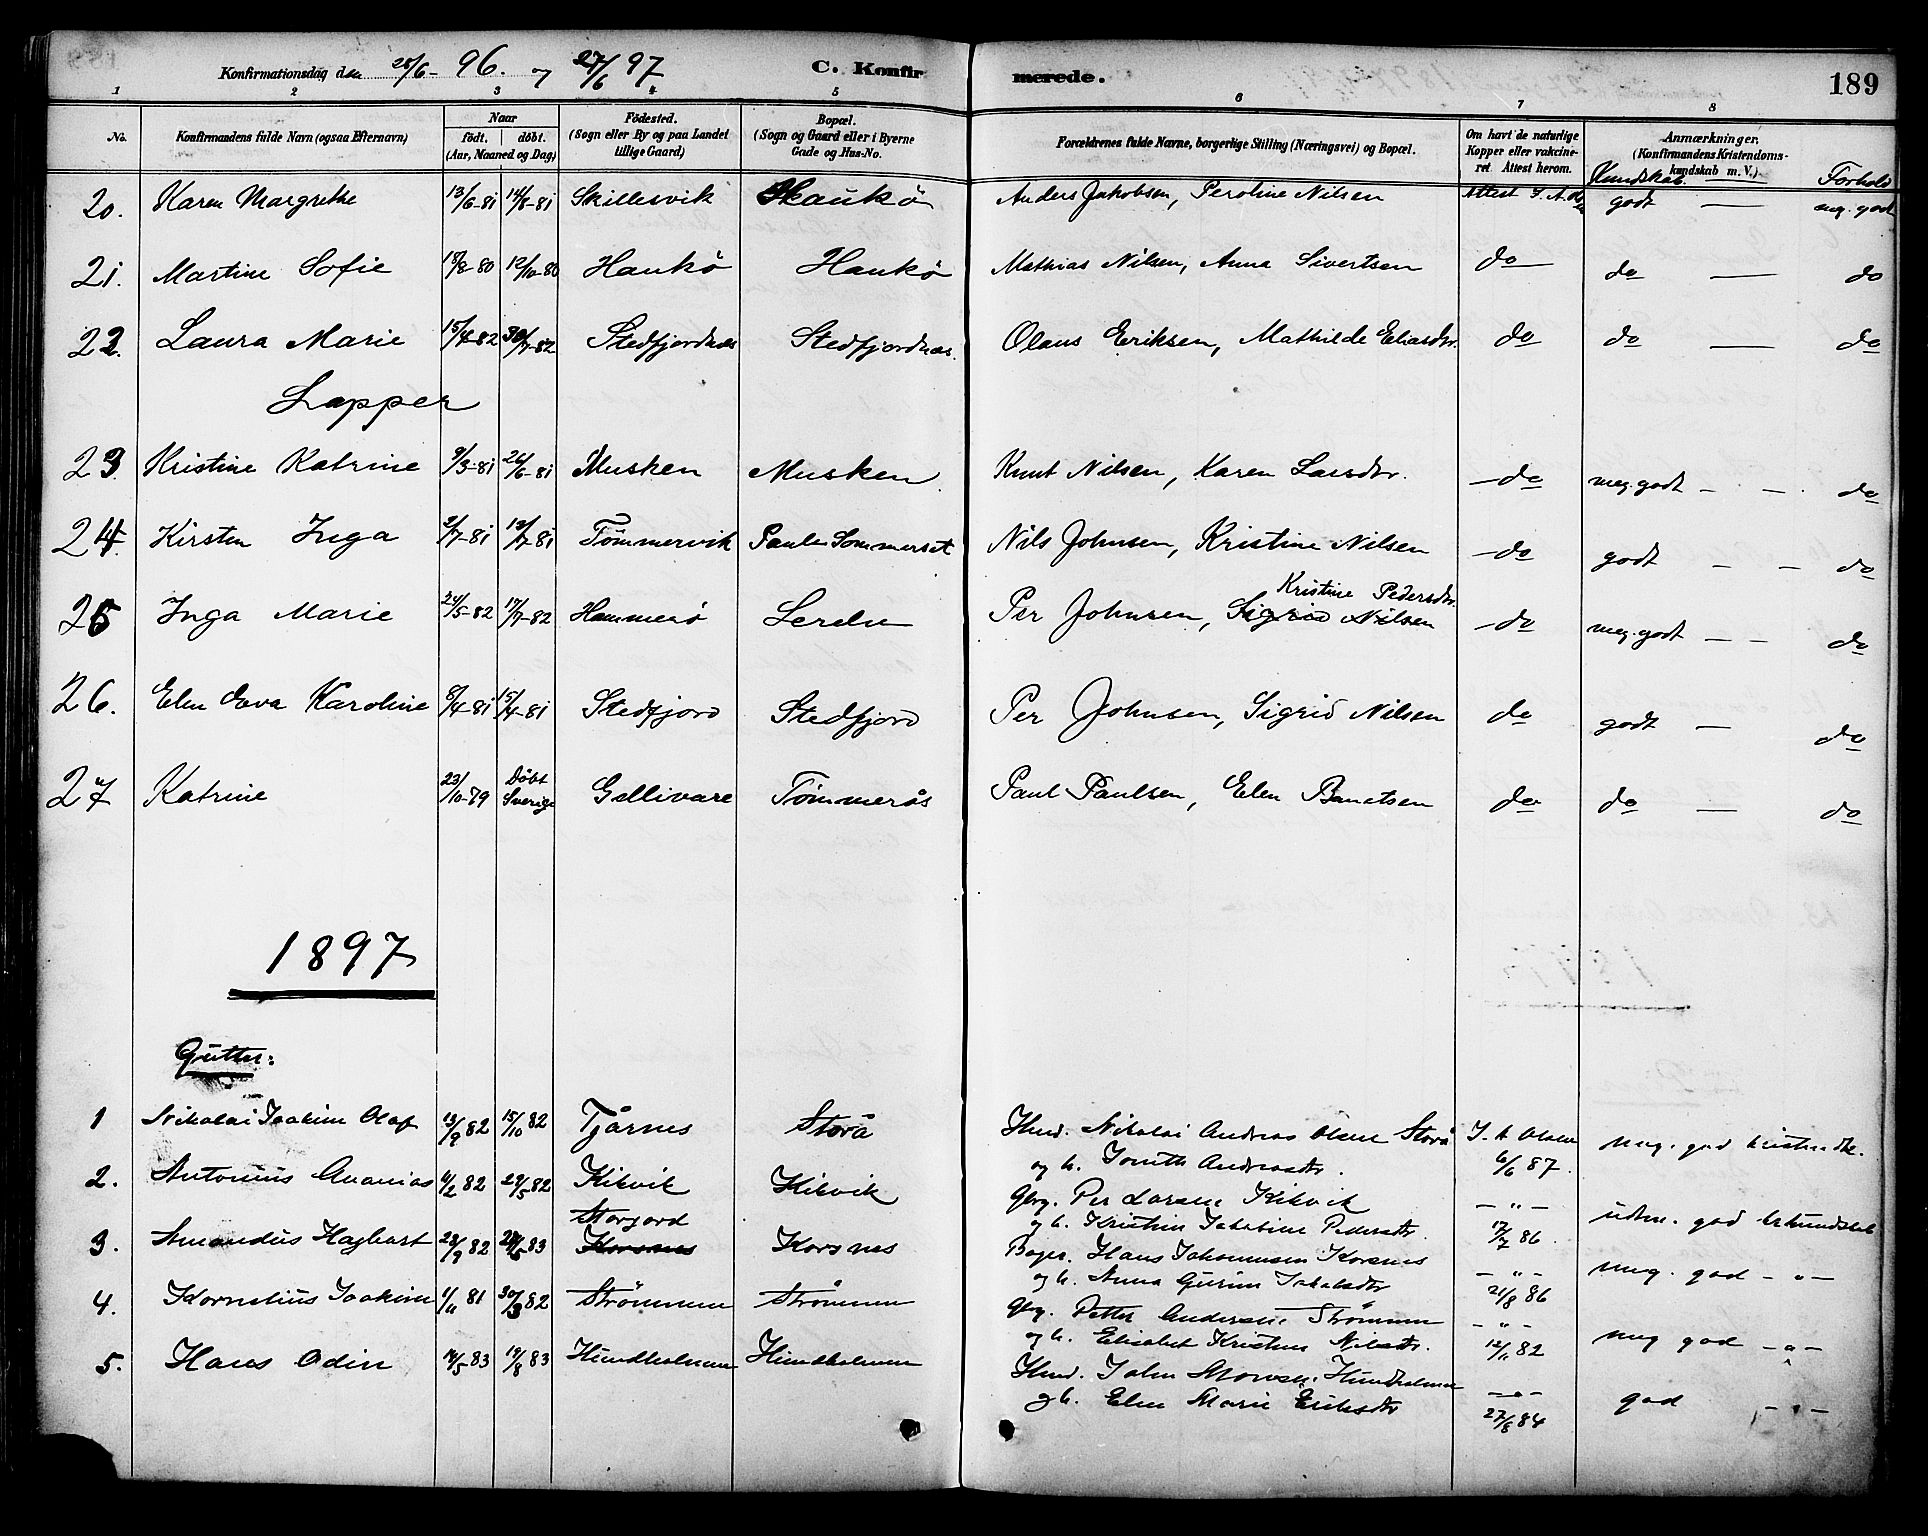 Konfirmationsdag den 28/6- 96. og 27/6 97 C. Konfirmerede. 189
1 2 3 4 5 6 7 8
No. Konfirmandens fulde Navn (ogsaa Efternavn) Naar født. døbt. (Aar, Maaned og Dag) Fødested. (Sogn eller By og paa Landet tillige Gaard) Bopæl. (Sogn og Gaard eller i Byerne Gade og Hus-No. Forældrenes fulde Navne, borgerlige Stilling (Næringsvei) og Bopæl. Om havt de naturlige Kopper eller vakcineret. Attest herom. Anmærkninger. (Konfirmandens Kristendomskundskab m. V.) Kundskab. Forhold
20. Karen Margrethe 13/6-81 14/8-81 Skillesvik Haukø Anders Jakobsen, Peroline Nilsen Attest J. A. godt — meg. godt
21. Martine Sofie 18/8-80 12/10-80 Haukø Haukø Mathias Nilsen, Anna Sivertsen do do — do
22. Laura Marie 15/4-82 30/7-82 Stedfjordnæs Stedfjordnæs. Olaus Eriksen, Mathilde Eliasdtr. do do — do
Lapper
23. Kristine Katrine 9/3-81 26/6-81 Musken Musken. Knut Nilsen, Karen Larsdtr. do meg. godt - - do
24. Kirsten Inga 2/7-81 13/7-81 Tømmervik Sommerset Nils Johnsen, Kristine Nilsen do godt - - do
25 Inga Marie 24/5-82 17/7-82 Hammerø Lerdu Per Johnsen, Sigrid Nilsen Kristine Pedersdtr. do meg. godt - - do
26. Elen Eva Karoline 8/4-81 15/4-81 Stedfjord Stedfjord Per Johnsen, Sigrid Nilsen do godt - do
27 Katrine 23/10-79 Døbt Sverige Gellivare Tømmerås Paul Paulsen, Elen do do — do
1897
Gutter:
1 Nikolai Joakim Olaf 13/9 82 15/10 82 Tjårnes Storå Hmd. Nikolai Andreas Olsen Storå
og h. Andreasdtr. J. A Olsen 6/6 87. meg. god kristendk.
2. Antonius Ananias 11/2 82 29/5 82 Kilvik Kilvik Gbrg. Per Larsen Kilvik
og h. Kristine Jakobine Pedersdtr. - " - 17/7 86. udm. god kundskab
3. Amandus Hagbart 28/9 82 83 Storjord Korsnes Korsnes Hans Johannesen Korsnes
og h. Anna Gurine Jakobsdtr - " - 21/8 86 meg. god - " -
4. Kornelius Joakim 1/11 81 30/3 82 Strømmen Strømmen Gbrg. Petter Andersen Strømmen
og h. Elisabet Kristine Nilsdtr. - " - 12/11 82 meg god - " -
5. Hans Odin 14/5 83 19/8 83 Hundholmen Hundholmen Hmd. John Hundholmen
og h. Elen Marie Eriksdtr - " - 27/8 84 god - " -